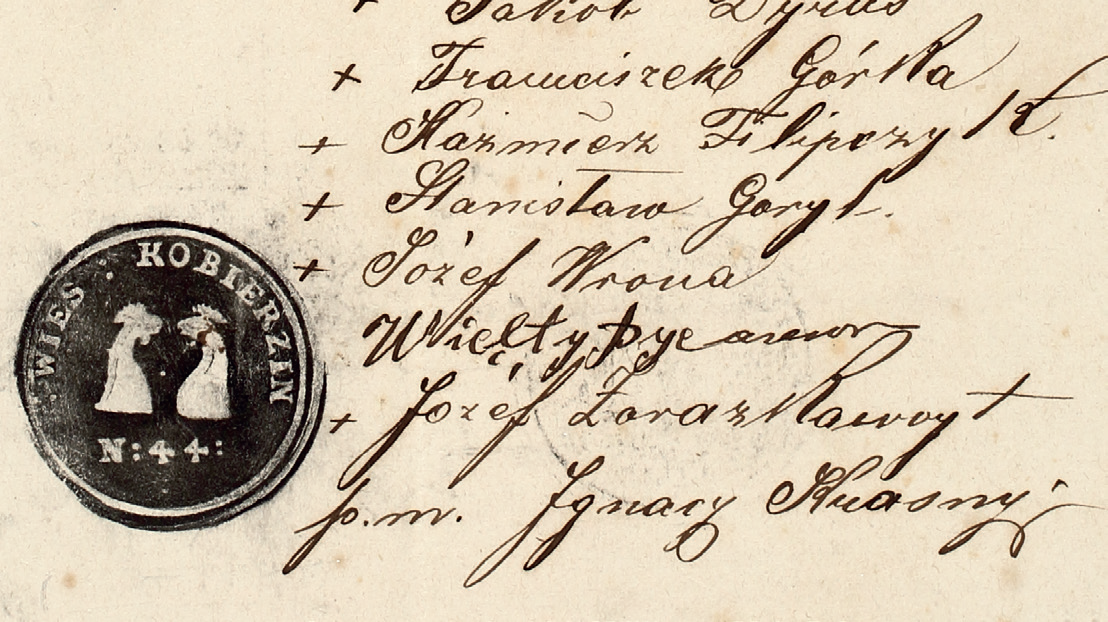 + Jakób Dyrus
+ Franciszek Górka
+ Kazimierz Filipczyk.
+ Stanisław Goryl.
+ Józef Wrona
+ Józef Zorazka woyt
p.m. Ignacy Krasny
WIES : KOBIERZIN
N:44: